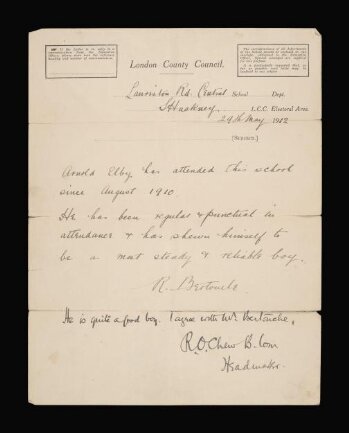 London County Council.
Lauriston Rd. Central School Dept.
S. Hackney L.C.C. Electoral Area
24th May 1912
Arnold Elby has attended this school
since August 1910
He has been regular & punctual in
attendance & has shewn himself to
be a most steady & reliable boy.
R. Bertouche
He is quite a good boy. I agree with Mr. Bertouche,
R. O. Chew B. Com
Headmaster.